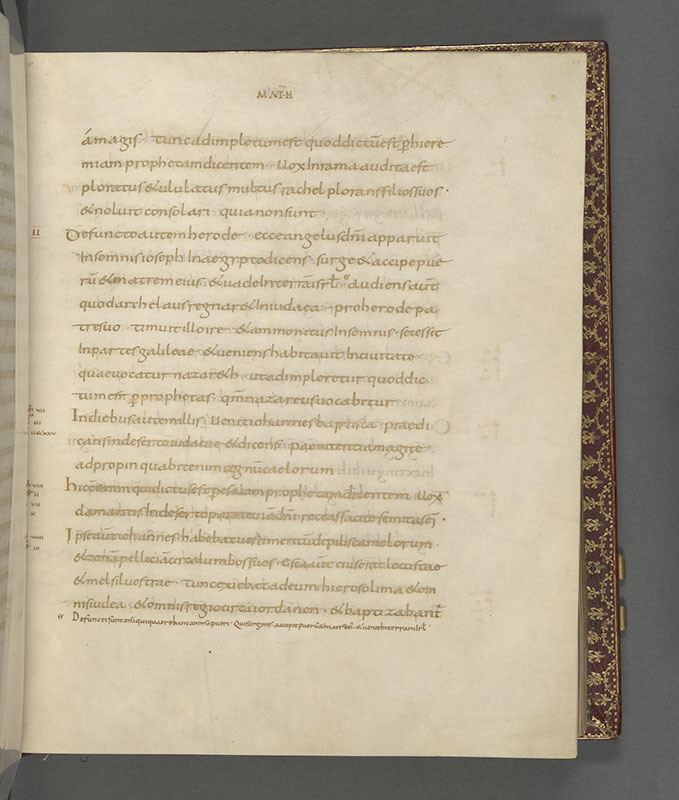 MATH
á magis · tunc adimpletum est quod dictū est p hiere
miam prophetam dicentem · Uox In rama audita est
ploratus & ululatus multus rachel plorans filios suos ·
& noluit consolari · quia non sunt ·
II
Defuncto autem herode · ecce angelus dnī apparuit
In somnis ioseph In aegypto dicens · surge & accipe pue
rū & matrem eius · & uade In terrā isrl · audiens aut̄
quod archelaus regnar& In iudaea · pro herode pa
tre suo · timuit illo ire · & ammonitus In somnis · secessit
In partes galileae · & ueniens habitauit In ciuitate
quae uocatur nazar&h · ut adimpleretur quod dic
tum est p prophetas · qm̄ nazareus uocabitur
In diebus autem illis · uenit iohannes baptista · praedi
cans in deserto iudaeae & dicens · paenitentiam agite
adpropinquabit enim regnū caelorum
hic est enim qui dictus est p esaiam prophetam dicentem · Uox
clamantis In deserto parate uiā dnī rectas facite semitas
Ipse aut̄ iohannes habebat uestimentū de pilis camelorum ·
& zonā pelliciā circa lumbos suos · esca aut̄ eius erat locustae
& mel siluestrae · tunc exiebat ad eum hierosolima & om
nis iudea · & omnis regio circa iordanen · & baptizabant
Defuncti sunt enī qui quaerebant animā pueri · Qui surgens accepit puerū & matrem · & uenit In terram isrl